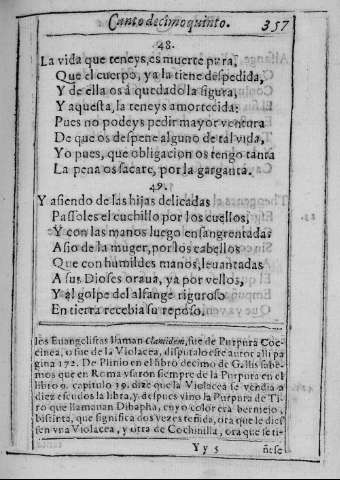 Canto decimoquinto. 357
48.
La vida que teneys, es muerte pura,
Que el cuerpo, ya la tiene despedida,
Y de ella os á quedado la figura,
Y aquesta, la teneys amortecida:
Pues no podeys pedir mayor ventura
De que os despene alguno de tal vida,
Yo pues, que obligacion os tengo tanta
La pena os sacare, por la garganta.
49.
Y asiendo de las hijas delicadas
Passoles el cuchillo por los cuellos,
Y con las manos luego ensangrentadas
Asio de la muger, por los cabellos
Que con humildes manos, levantadas
A sus Dioses oraua, ya por vellos,
Y al golpe del alfange riguroso
En tierra recebia su reposo.
los Euangelistas llaman Clamidem, fue de Purpura Coc-
cinea, o fue de la Violacea, disputalo este autor alli pa
gina 172. De Plinio en el libro decimo de G. llis sabe-
mos que en Roma vsaron siempre de la Purpura en el
libro 9. capitulo 39. dize que la Violacea se vendia a
diez escudos la libra, y despues vino la Purpura de Ti-
ro que llamauan Dibapha, cuyo color era bermejo,
bistinta, que significa dos vezes teñida, ora que le dies
sen vna Violacea, y otra de Cochinilla, ora que se ti-
Y y 5 ñese